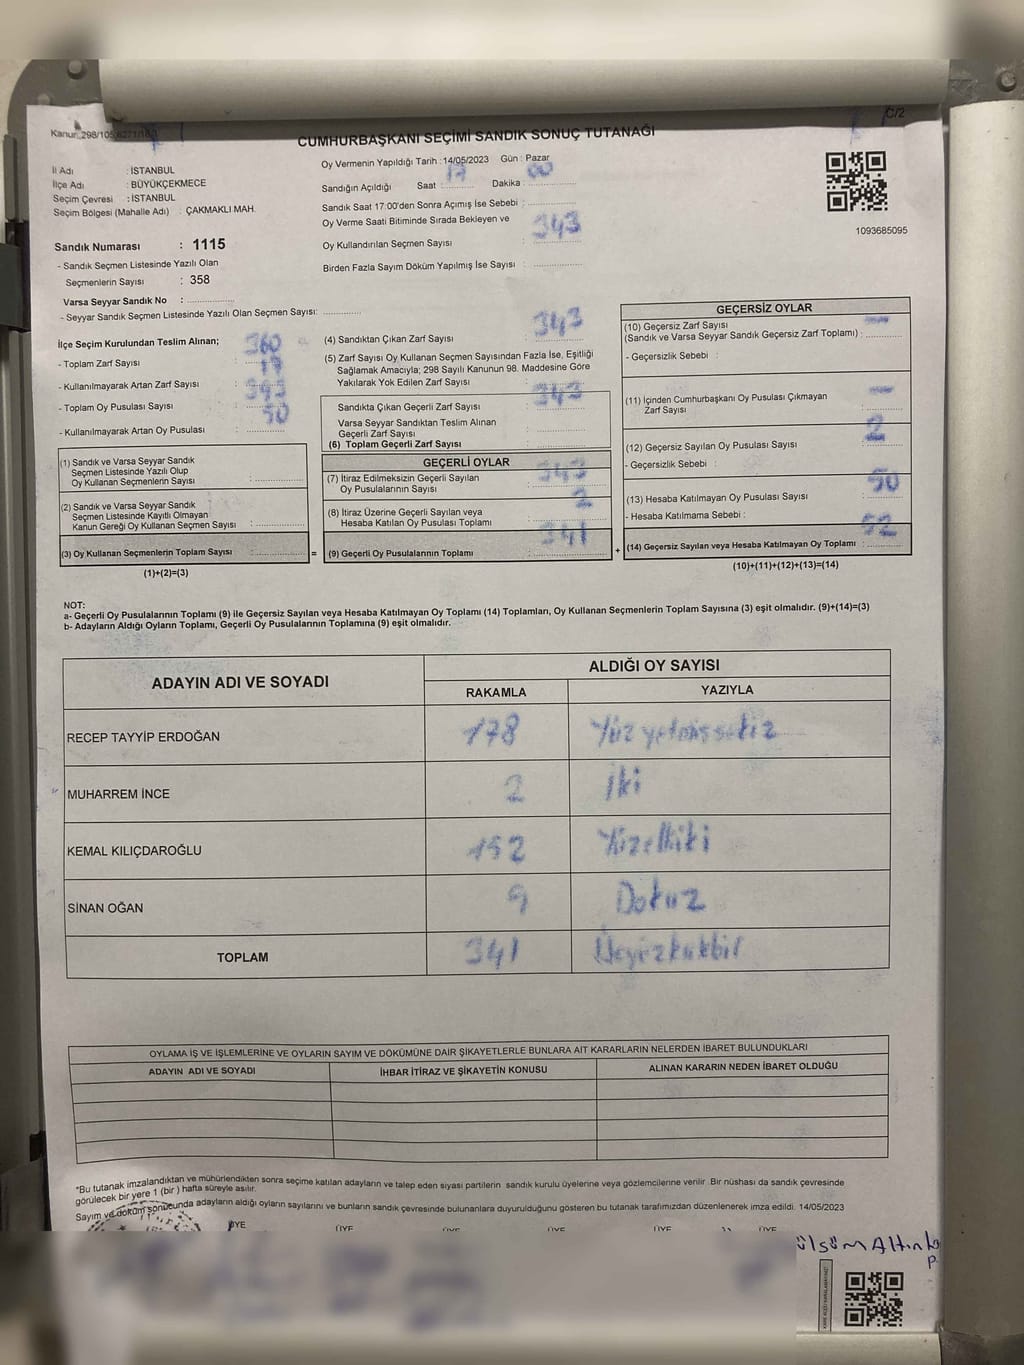 Kanun: 298/105
C/2
CUMHURBAŞKANI SEÇİMİ SANDIK SONUÇ TUTANAĞI
İl Adı : İSTANBUL
İlçe Adı : BÜYÜKÇEKMECE
Seçim Çevresi : İSTANBUL
Seçim Bölgesi (Mahalle Adı) : ÇAKMAKLI MAH.
Sandık Numarası : 1115
- Sandık Seçmen Listesinde Yazılı Olan
Seçmenlerin Sayısı : 358
Varsa Seyyar Sandık No :
- Seyyar Sandık Seçmen Listesinde Yazılı Olan Seçmen Sayısı:
Oy Vermenin Yapıldığı Tarih : 14/05/2023 Gün : Pazar
Sandığın Açıldığı Saat : 17 Dakika : 00
Sandık Saat 17:00'den Sonra Açımış İse Sebebi :
Oy Verme Saati Bitiminde Sırada Bekleyen ve
Oy Kullandırılan Seçmen Sayısı : 343
Birden Fazla Sayım Döküm Yapılmış İse Sayısı :
1093685095
İlçe Seçim Kurulundan Teslim Alınan;
- Toplam Zarf Sayısı : 360
- Kullanılmayarak Artan Zarf Sayısı : 17
- Toplam Oy Pusulası Sayısı : 393
- Kullanılmayarak Artan Oy Pusulası : 50
(1) Sandık ve Varsa Seyyar Sandık
Seçmen Listesinde Yazılı Olup
Oy Kullanan Seçmenlerin Sayısı :
(2) Sandık ve Varsa Seyyar Sandık
Seçmen Listesinde Kayıtlı Olmayan
Kanun Gereği Oy Kullanan Seçmen Sayısı :
(3) Oy Kullanan Seçmenlerin Toplam Sayısı :
(1)+(2)=(3)
=
(4) Sandıktan Çıkan Zarf Sayısı : 343
(5) Zarf Sayısı Oy Kullanan Seçmen Sayısından Fazla İse, Eşitliği
Sağlamak Amacıyla; 298 Sayılı Kanunun 98. Maddesine Göre
Yakılarak Yok Edilen Zarf Sayısı :
Sandıkta Çıkan Geçerli Zarf Sayısı : 343
Varsa Seyyar Sandıktan Teslim Alınan
Geçerli Zarf Sayısı :
(6) Toplam Geçerli Zarf Sayısı :
GEÇERLİ OYLAR
(7) İtiraz Edilmeksizin Geçerli Sayılan
Oy Pusulalarının Sayısı : 343
(8) İtiraz Üzerine Geçerli Sayılan veya
Hesaba Katılan Oy Pusulası Toplamı : 2
(9) Geçerli Oy Pusulalarının Toplamı : 341
+
GEÇERSİZ OYLAR
(10) Geçersiz Zarf Sayısı
(Sandık ve Varsa Seyyar Sandık Geçersiz Zarf Toplamı) : —
- Geçersizlik Sebebi :
(11) İçinden Cumhurbaşkanı Oy Pusulası Çıkmayan
Zarf Sayısı : —
(12) Geçersiz Sayılan Oy Pusulası Sayısı : 2
- Geçersizlik Sebebi :
(13) Hesaba Katılmayan Oy Pusulası Sayısı : 50
- Hesaba Katılmama Sebebi :
(14) Geçersiz Sayılan veya Hesaba Katılmayan Oy Toplamı : 52
(10)+(11)+(12)+(13)=(14)
NOT:
a- Geçerli Oy Pusulalarının Toplamı (9) ile Geçersiz Sayılan veya Hesaba Katılmayan Oy Toplamı (14) Toplamları, Oy Kullanan Seçmenlerin Toplam Sayısına (3) eşit olmalıdır. (9)+(14)=(3)
b- Adayların Aldığı Oyların Toplamı, Geçerli Oy Pusulalarının Toplamına (9) eşit olmalıdır.
ADAYIN ADI VE SOYADI
ALDIĞI OY SAYISI
RAKAMLA YAZIYLA
RECEP TAYYİP ERDOĞAN 178 Yüz yetmiş sekiz
MUHARREM İNCE 2 İki
KEMAL KILIÇDAROĞLU 152 Yüzelliiki
SİNAN OĞAN 9 Dokuz
TOPLAM 341 Üçyüzkırkbir
OYLAMA İŞ VE İŞLEMLERİNE VE OYLARIN SAYIM VE DÖKÜMÜNE DAİR ŞİKAYETLERLE BUNLARA AİT KARARLARIN NELERDEN İBARET BULUNDUKLARI
ADAYIN ADI VE SOYADI İHBAR İTİRAZ VE ŞİKAYETİN KONUSU ALINAN KARARIN NEDEN İBARET OLDUĞU
*Bu tutanak imzalandıktan ve mühürlendikten sonra seçime katılan adayların ve talep eden siyasi partilerin sandık kurulu üyelerine veya gözlemcilerine verilir. Bir nüshası da sandık çevresinde
görülecek bir yere 1 (bir) hafta süreyle asılır.
Sayım ve döküm sonucunda adayların aldığı oyların sayılarını ve bunların sandık çevresinde bulunanlara duyurulduğunu gösteren bu tutanak tarafımızdan düzenlenerek imza edildi. 14/05/2023
ÜYE ÜYE ÜYE ÜYE ÜYE ÜYE